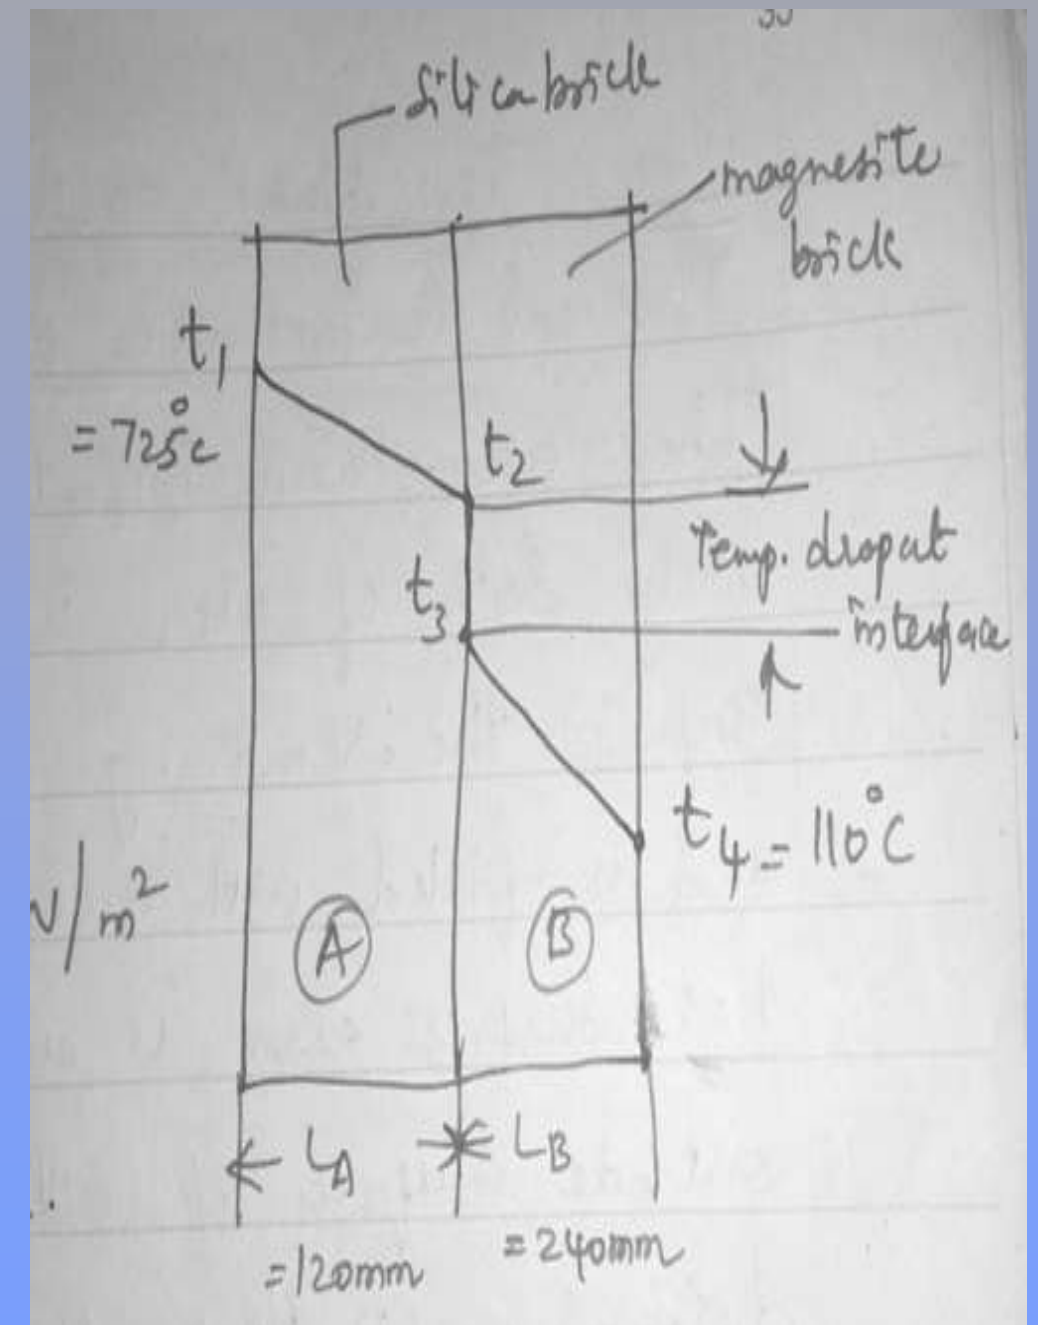 Silica brick
magnesite
brick
t1
= 725°c
t2
Temp. drop at
interface
t3
t4 = 110°C
/m²
A
B
LA
LB
=120mm
=240mm